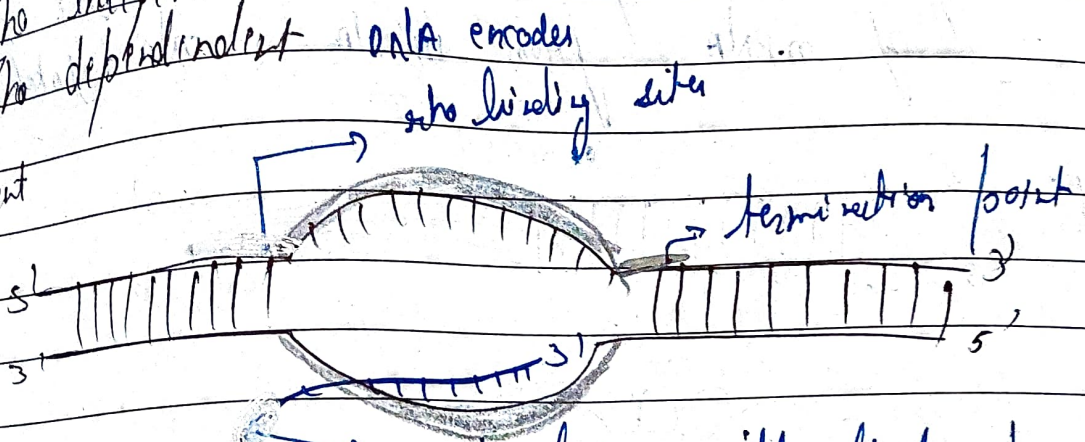 Rho dependindent DNA encodes
rho binding sites
termination point
5' 3'
3' 5'
3'